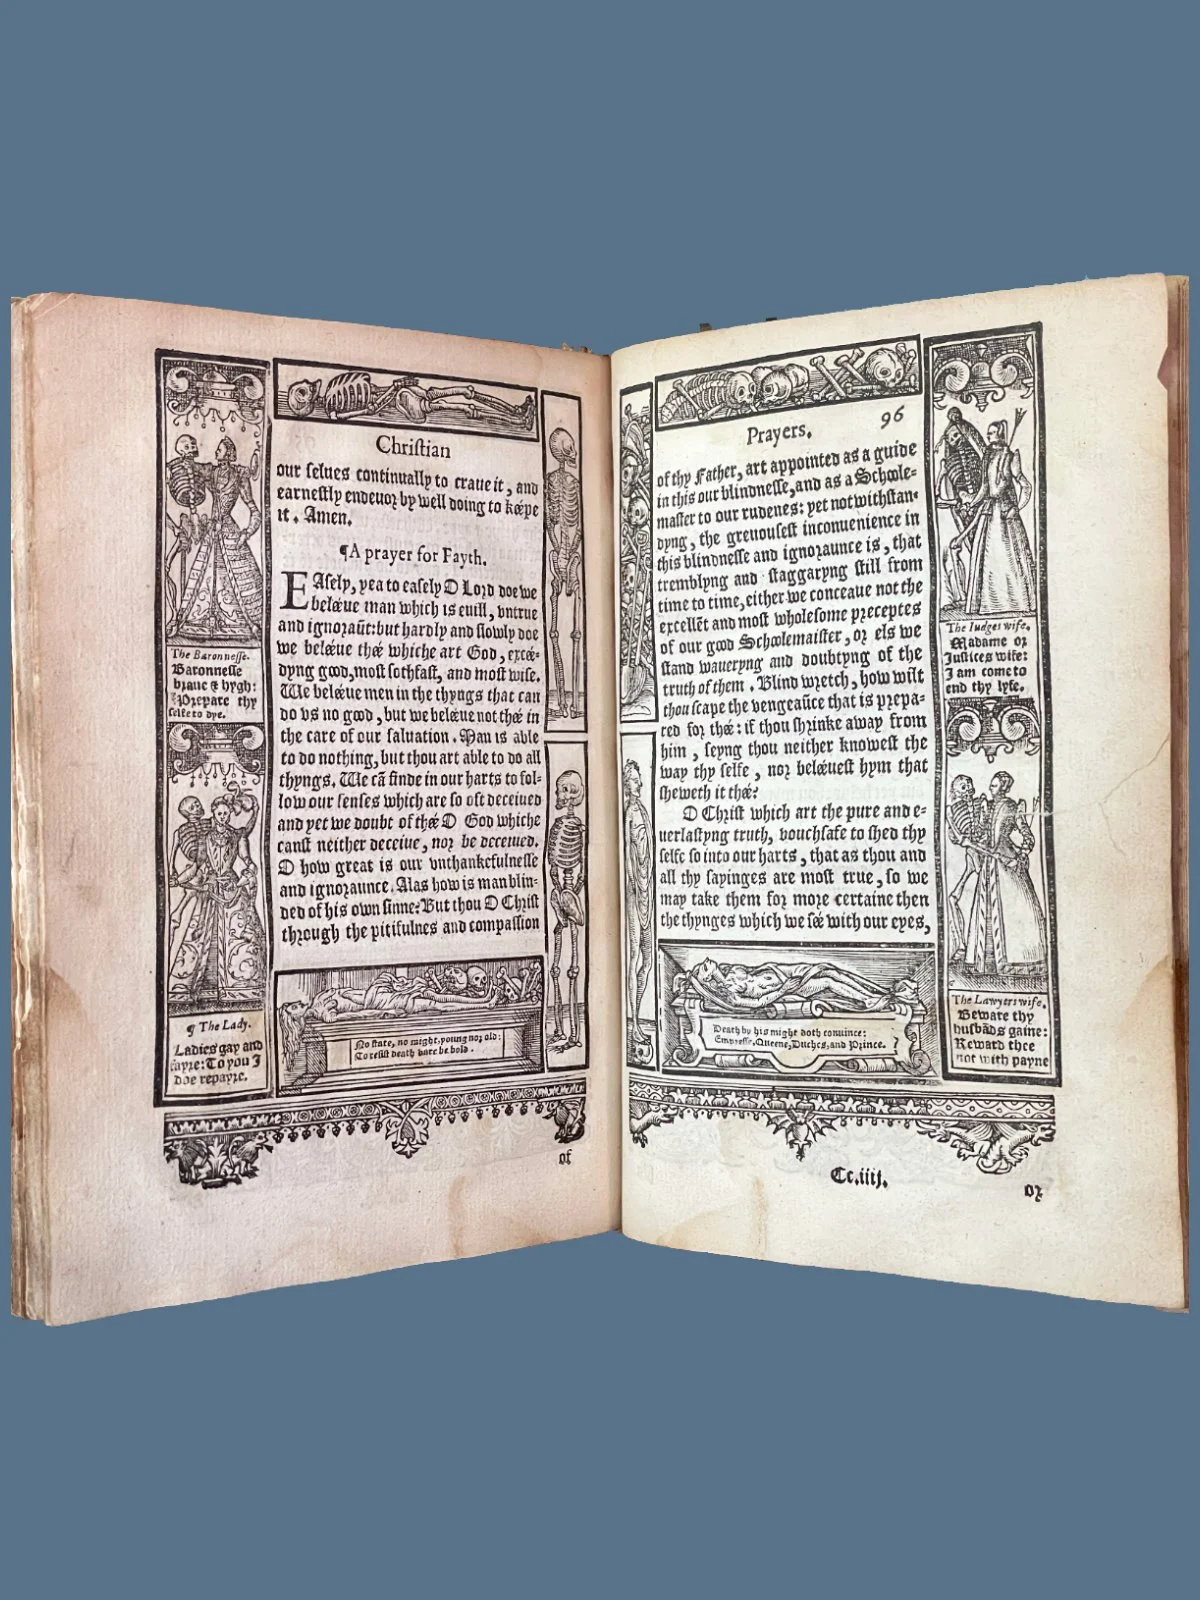 Christian
our selues continually to craue it, and
earnestly endeuor by well doing to kéepe
it. Amen.
¶A prayer for Fayth.
EAsely, yea to easely O Lord doe we
beléeue man which is euill, vntrue
and ignoraūt: but hardly and slowly doe
we beléeue thée whiche art God, excée-
dyng good, most sothfast, and most wise.
We beléeue men in the thyngs that can
do vs no good, but we beléeue not thée in
the care of our saluation. Man is able
to do nothing, but thou art able to do all
thyngs. We cā finde in our harts to fol-
low our senses which are so oft deceiued
and yet we doubt of thée O God whiche
canst neither deceiue, nor be deceiued.
O how great is our vnthankefulnesse
and ignoraunce. Alas how is man blin-
ded of his own sinne: But thou O Christ
through the pitifulnes and compassion
The Baronnesse.
Baronnesse
braue & hygh:
Prepare thy
selfe to dye.
¶ The Lady.
Ladies gay and
fayre: To you I
doe repayre.
No state, no might, young nor old:
To resist death dare be bold.
of
Prayers.
96
of thy Father, art appointed as a guide
in this our blindnesse, and as a Schoole-
master to our rudenes: yet notwithstan-
dyng, the greuousest inconuenience in
this blindnesse and ignoraunce is, that
tremblyng and staggaryng still from
time to time, either we conceaue not the
excellēt and most wholesome preceptes
of our good Schoolemaister, or els we
stand waueryng and doubtyng of the
truth of them. Blind wretch, how wilt
thou scape the vengeaūce that is prepa-
red for thée: if thou shrinke away from
him, seyng thou neither knowest the
way thy selfe, nor beléeuest hym that
sheweth it thée?
O Christ which art the pure and e-
uerlastyng truth, vouchsafe to shed thy
selfe so into our harts, that as thou and
all thy sayinges are most true, so we
may take them for more certaine then
the thynges which we sée with our eyes,
The Iudges wife.
Madame or
Justices wife:
I am come to
end thy lyfe.
The Lawyers wife.
Beware thy
husbāds gaine:
Reward thee
not with payne
Death by his might doth conuince:
Empresse, Queene, Duches, and Prince.
Cc.iiij.
or